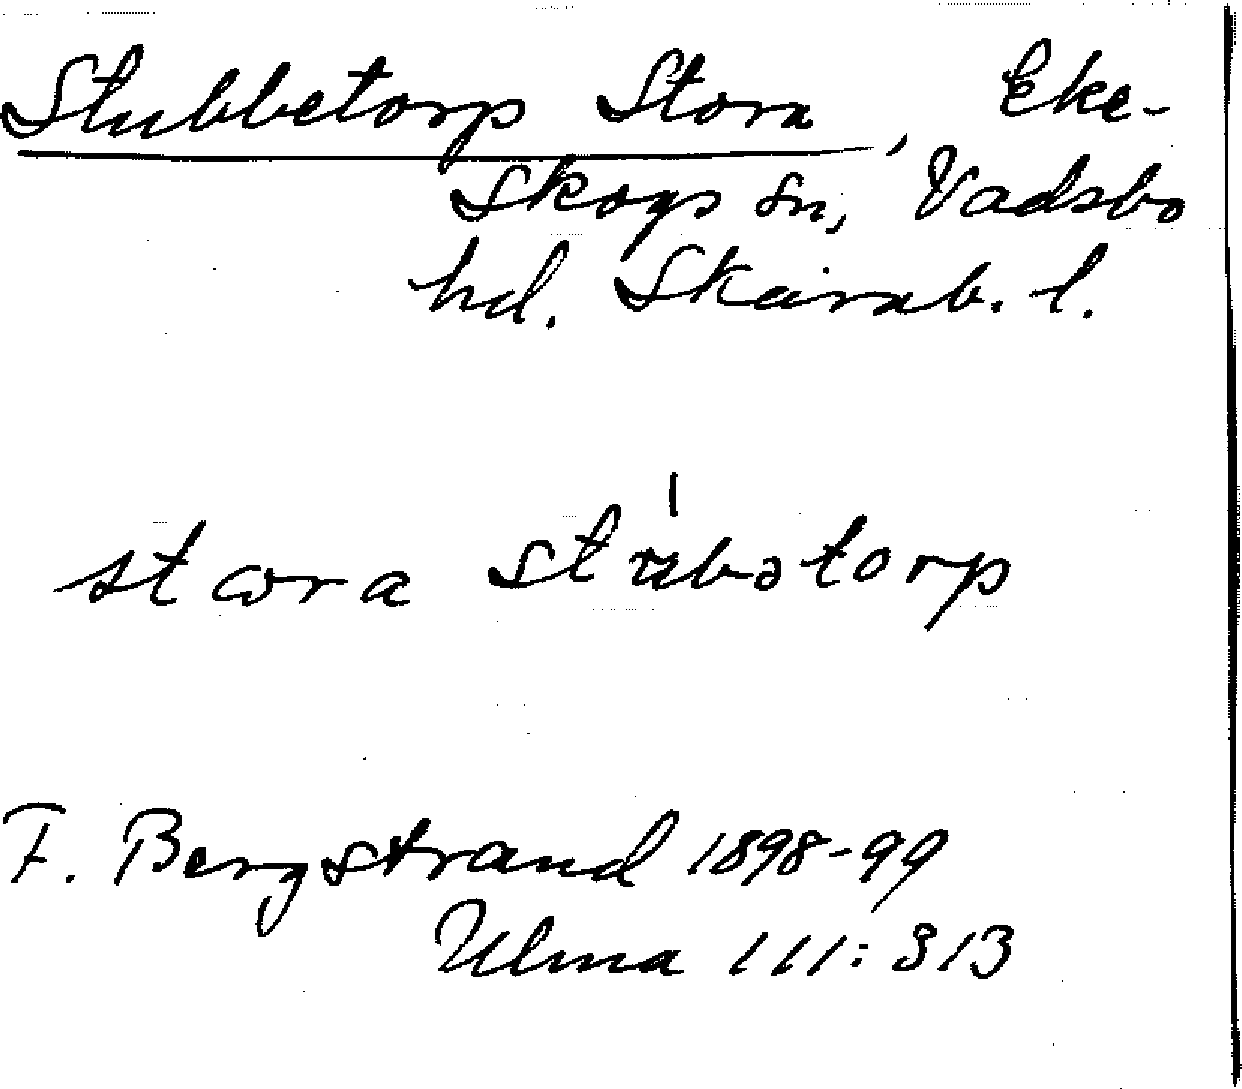 Stubbetorp Stora, Eke-
skogs sn, Vadsbo
hd. Skarab. l.
stora stubətorp
F. Bergstrand 1898-99
Ulma 111:313